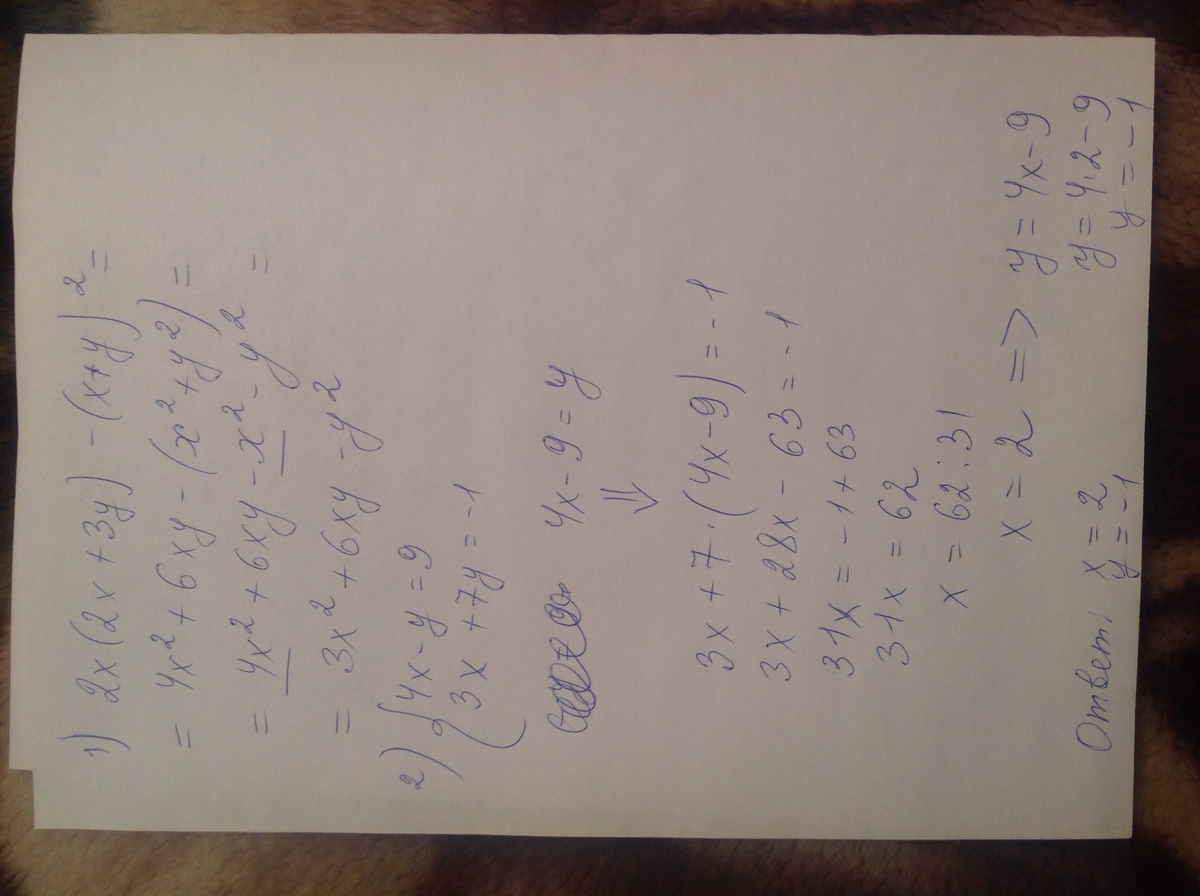 1) 2x(2x+3y) - (x+y)² =
= 4x² + 6xy - (x² + y²) =
= 4x² + 6xy - x² - y² =
= 3x² + 6xy - y²
2) { 4x - y = 9
3x + 7y = -1
4x - 9 = y
⇓
3x + 7·(4x-9) = -1
3x + 28x - 63 = -1
31x = -1 + 63
31x = 62
x = 62:31
x = 2 => y = 4x-9
y = 4·2-9
y = -1
Ответ: x = 2
y = -1